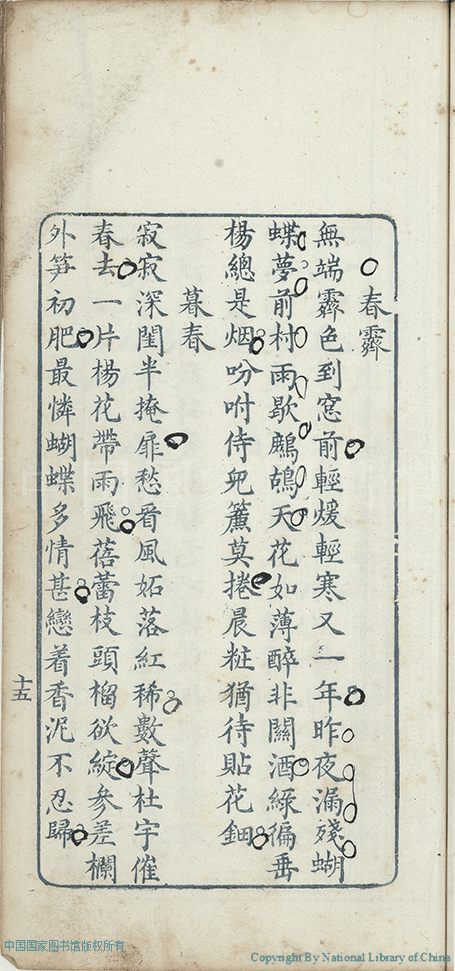 春霽
無端霽色到窓前輕煖輕寒又一年昨夜漏殘蝴
蝶夢前村雨歇鷓鴣天花如薄醉非關酒綠徧垂
楊總是烟吩咐侍兒簾莫捲晨粧猶待貼花鈿
暮春
寂寂深閨半掩扉愁看風妬落紅稀數聲杜宇催
春去一片楊花帶雨飛蓓蕾枝頭榴欲綻參差欄
外笋初肥最憐蝴蝶多情甚戀着香泥不忍歸
十五
中国国家图书馆版权所有
Copyright By National Library of China